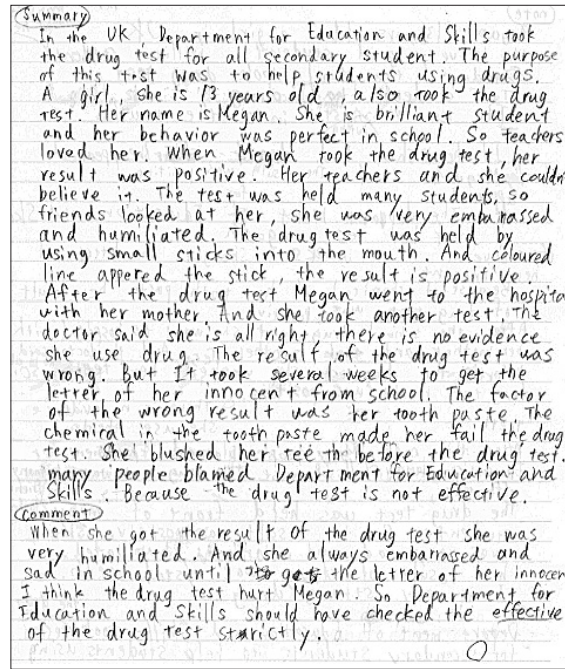 Summary
In the UK, Department for Education and Skills took
the drug test for all secondary student. The purpose
of this test was to help students using drugs.
A girl, She is 13 years old, also took the drug
test. Her name is Megan. She is brilliant student
and her behavior was perfect in school. So teachers
loved her. When Megan took the drug test, her
result was positive. Her teachers and she couldn
believe it. The test was held many students, so
friends looked at her, she was very embarassed
and humiliated. The drug test was held by
using small sticks into the mouth. And coloured
line appered the stick, the result is positive.
After the drug test Megan went to the hospita
with her mother. And she took another test. The
doctor said she is all right, there is no evidence
she use drug. The result of the drug test was
wrong. But It took several weeks to get the
letter of her innocent from school. The factor
of the wrong result was her tooth paste. The
chemical in the tooth paste made her fail the drug
test. She blushed her teeth before the drug test.
many people blamed Department for Education and
Skills. Because the drug test is not effective.
Comment
When she got the result of the drug test she was
very humiliated. And she always embarrassed and
sad in school until to get the letter of her innocen
I think the drug test hurt Megan. So Department for
Education and Skills should have checked the effective
of the drug test strictly.